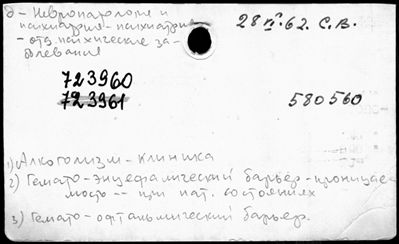 д - Невропатология и
психиатрия - психиатрия
- отд. психические за-
болевания
28 IV.62. С.В.
723960
723961
580560
1) Алкоголизм - клиника
2) Гемато-энцефалический барьер - проницае-
мость -- при пат. состояниях
3) Гемато-офтальмический барьер.